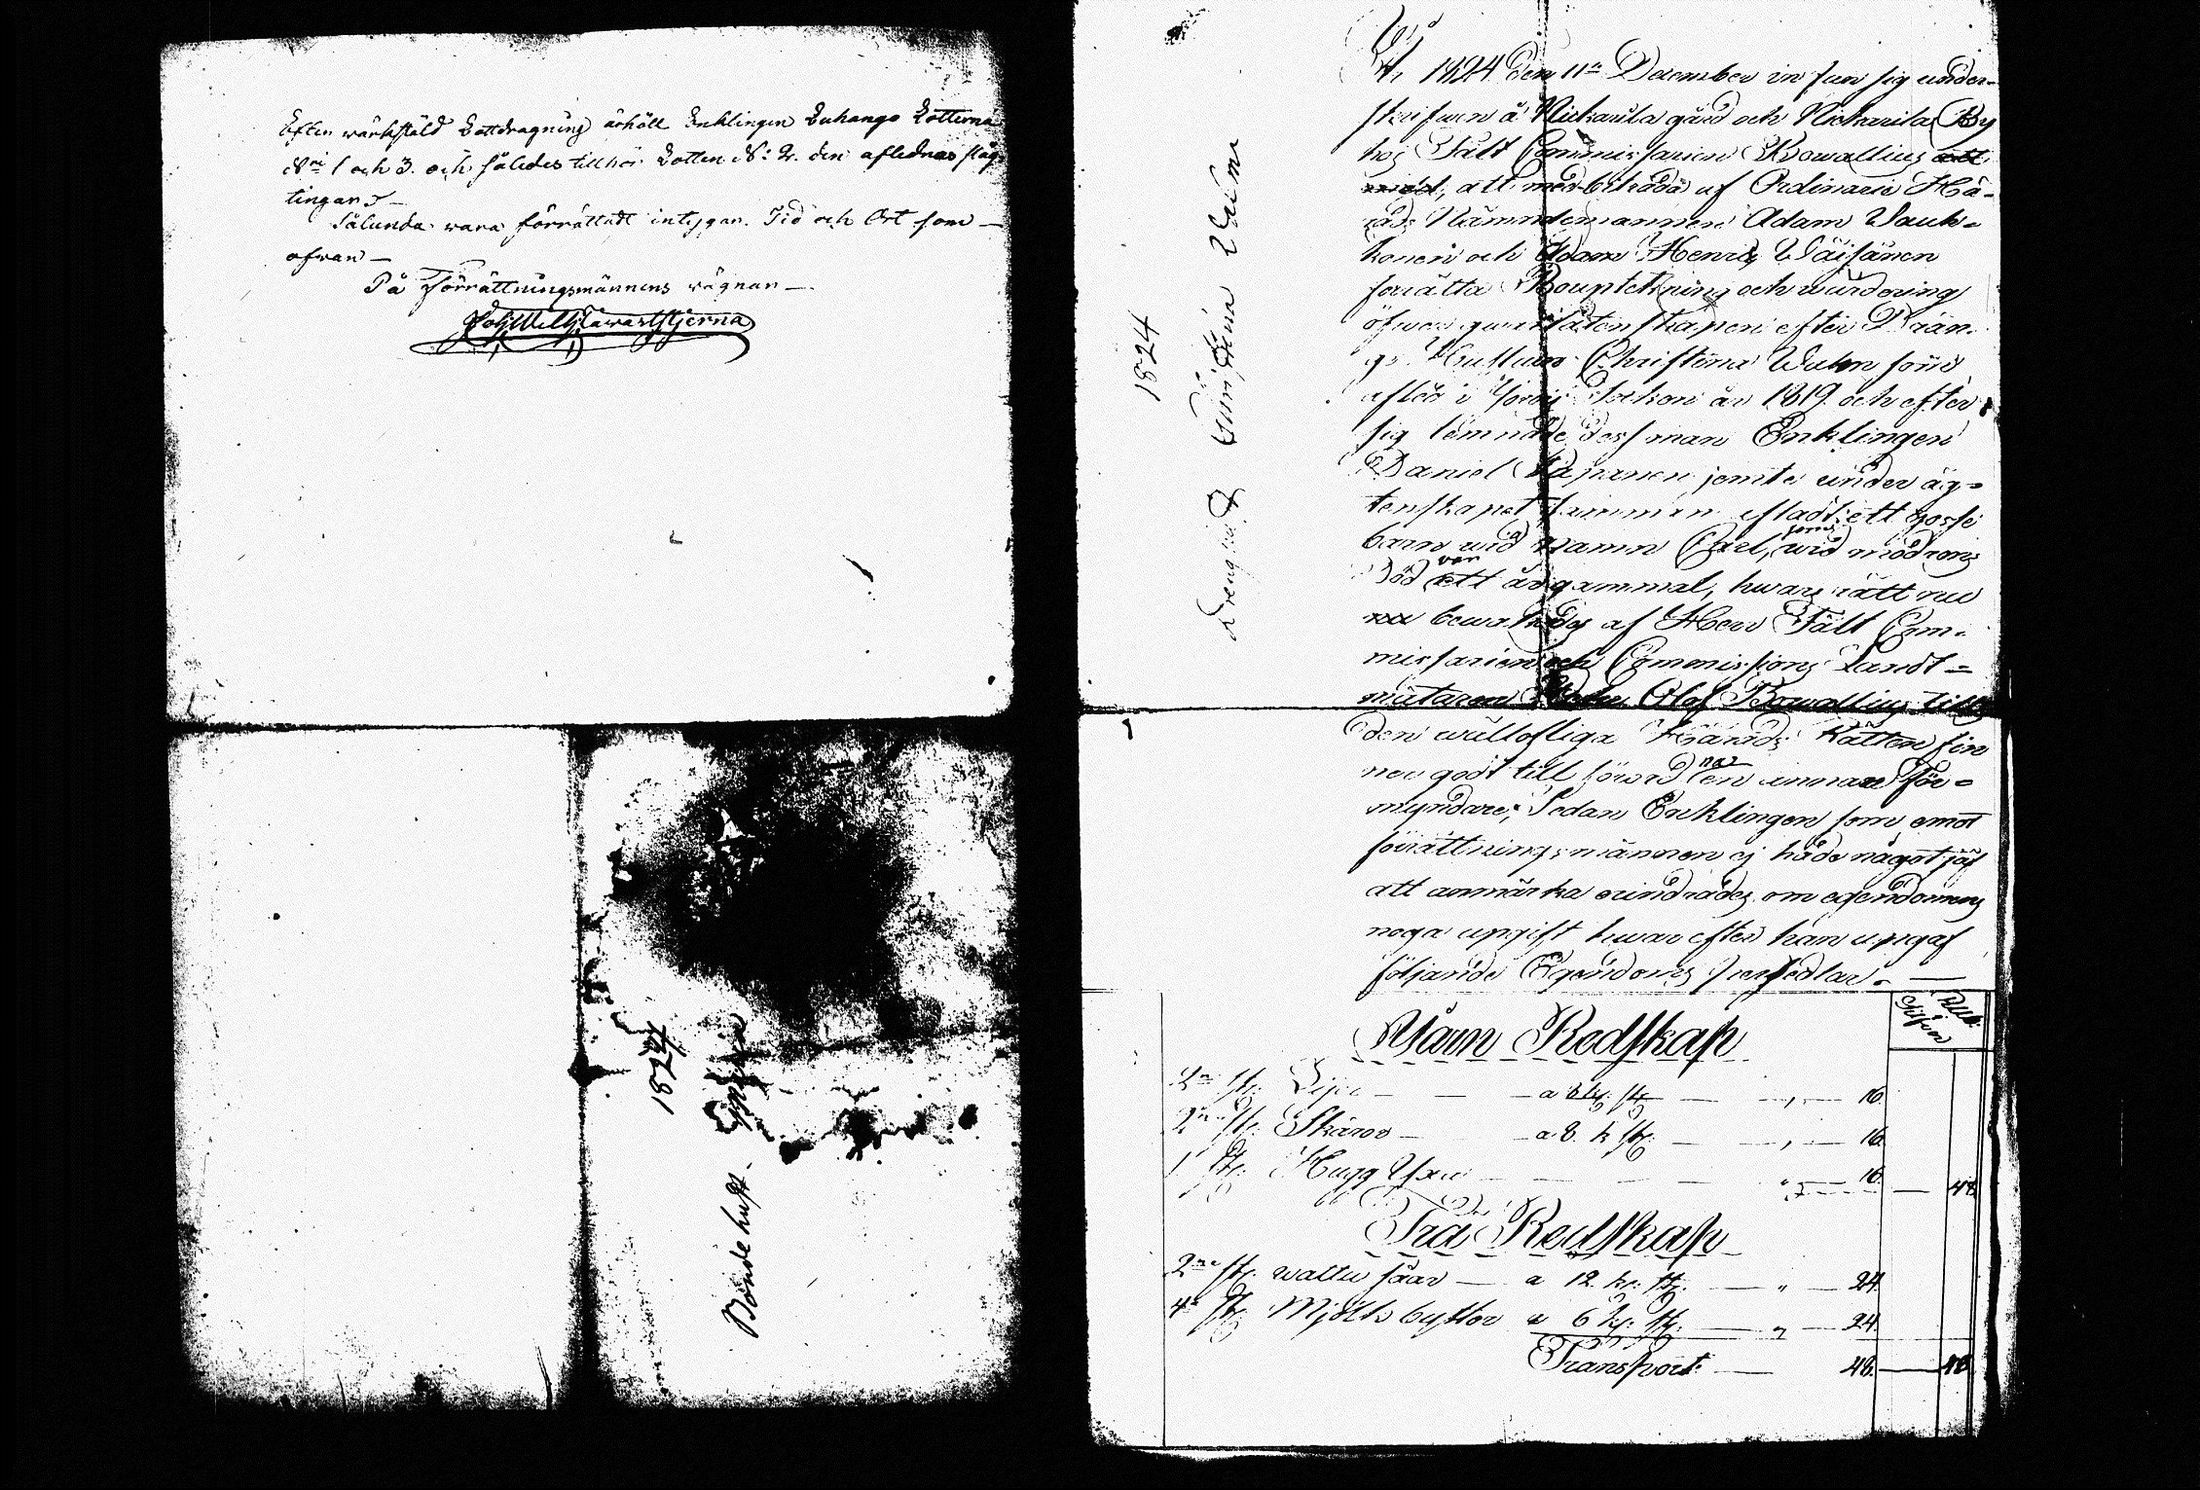 Efter wärkstäld Lottdragning ärhöll Enklingen Luhango Lotterna
N:ri 1 och 3. och således tillhör Lotten N: 2. den aflednas släg-
tingar
Sålunda vara förrättadt intygar. Tid och Ort som
ofwan
På Förrättningsmännens vägnar
1824
Bönde hust.
1824
År 1824 den 11te December in fan sig under-
skrifwen å Nickarila gård och Nickarila By
hos Fält Commissarien Bowallius
att med biträde af Ordinarie Hä-
rads Nämndemannen Adam Wauh-
konen och Adam Henric Wäisänen
förrätta Boupteckning och wärdering
öfwer qwarlåtenskapen efter Drän-
gs Hustrun Christina som
afled i Jorois Sockon år 1819 och efter
sig lemnade dess man Enklingen
Daniel jemte under äg-
tenskapet samman afladt ett gosse
barn wid namn Carl, som wid modrens
död var ett år gammal, hwars rätt nu
bewakades af Herr Fält Com-
missarien och Commissions Landt-
mätaren Olof Bowallius till
den wällofliga Härads Rätten fin-
ner godt till förord na en annan För-
myndare; Sedan Enklingen som emot
förrättningsmännen ej hade något jäf
att anmärka erindrades om egendomens
noga upgift hwarefter han upgaf
följande Egendoms Persedlar
Rub.
Silfver
Järn Redskap
2ne st: Lijor a 8 k: st: 16.
2ne st: Skäror a 8. k st: 16.
1 st: Hugg Yxa 16. 48
Trä Redskap
2ne st: wattu såar a 12 k: st: 24.
4a st: Mjölk byttor a 6 k: st: 24.
Transport 48. 48